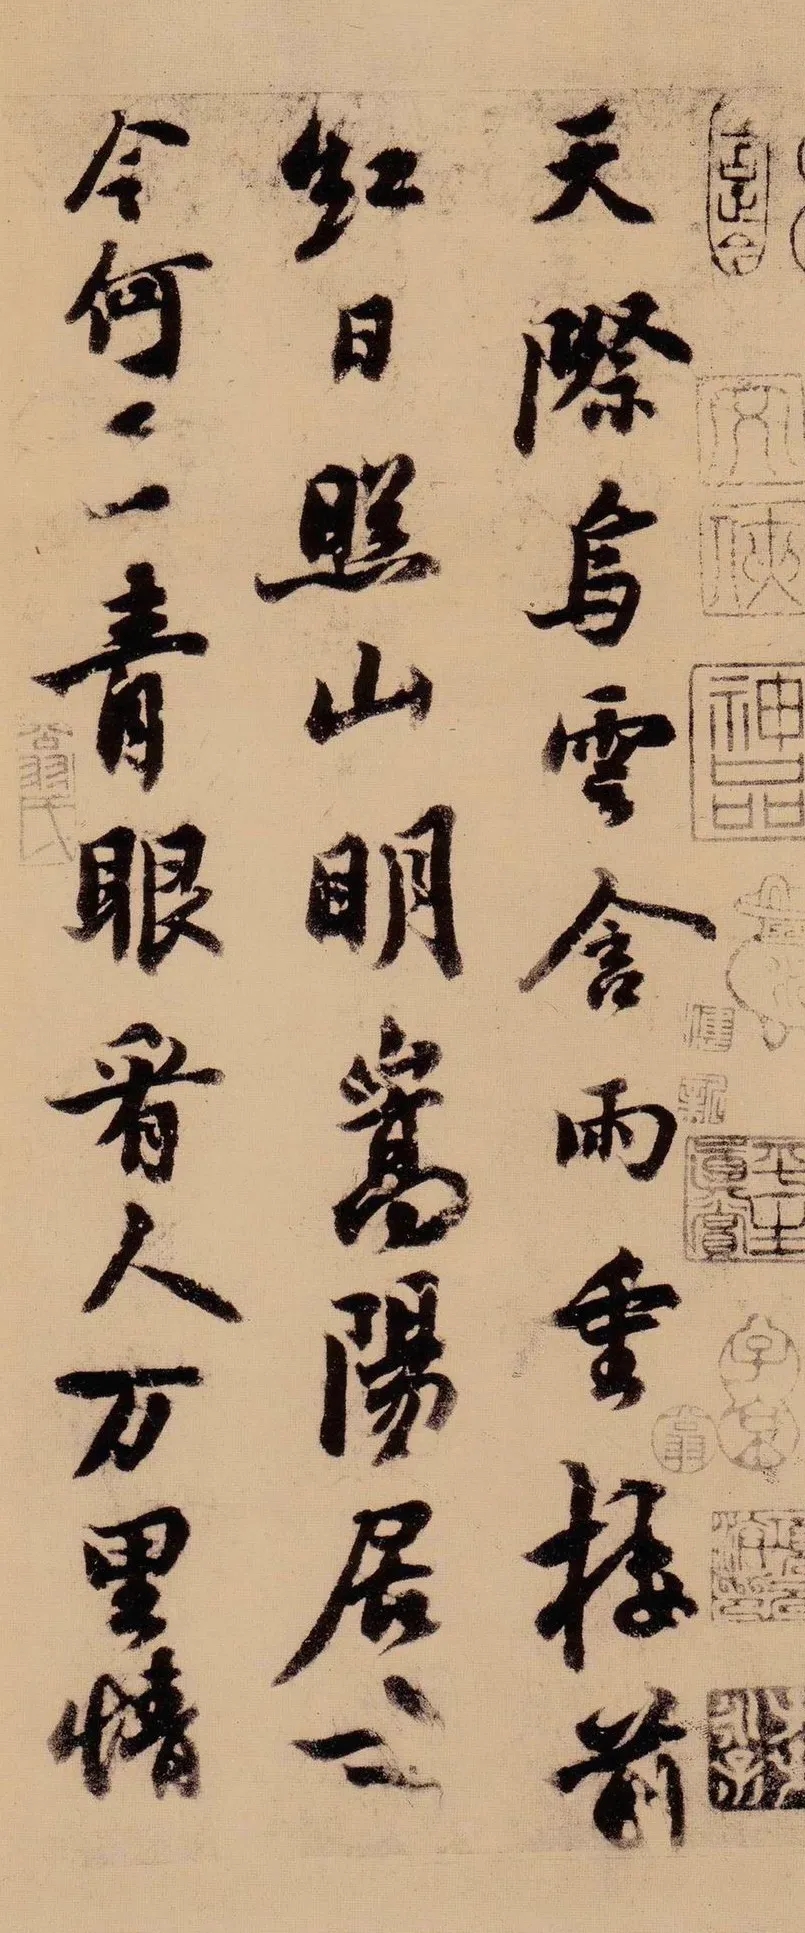 天際烏雲含雨重樓前
紅日照山明嵩陽居士
今何在青眼看人万里情
神品
平生真賞